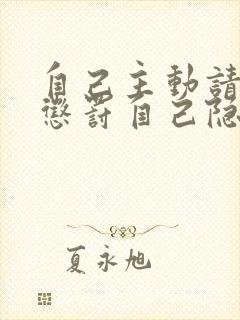 自己主動請
懲罰自己隐
夏永旭